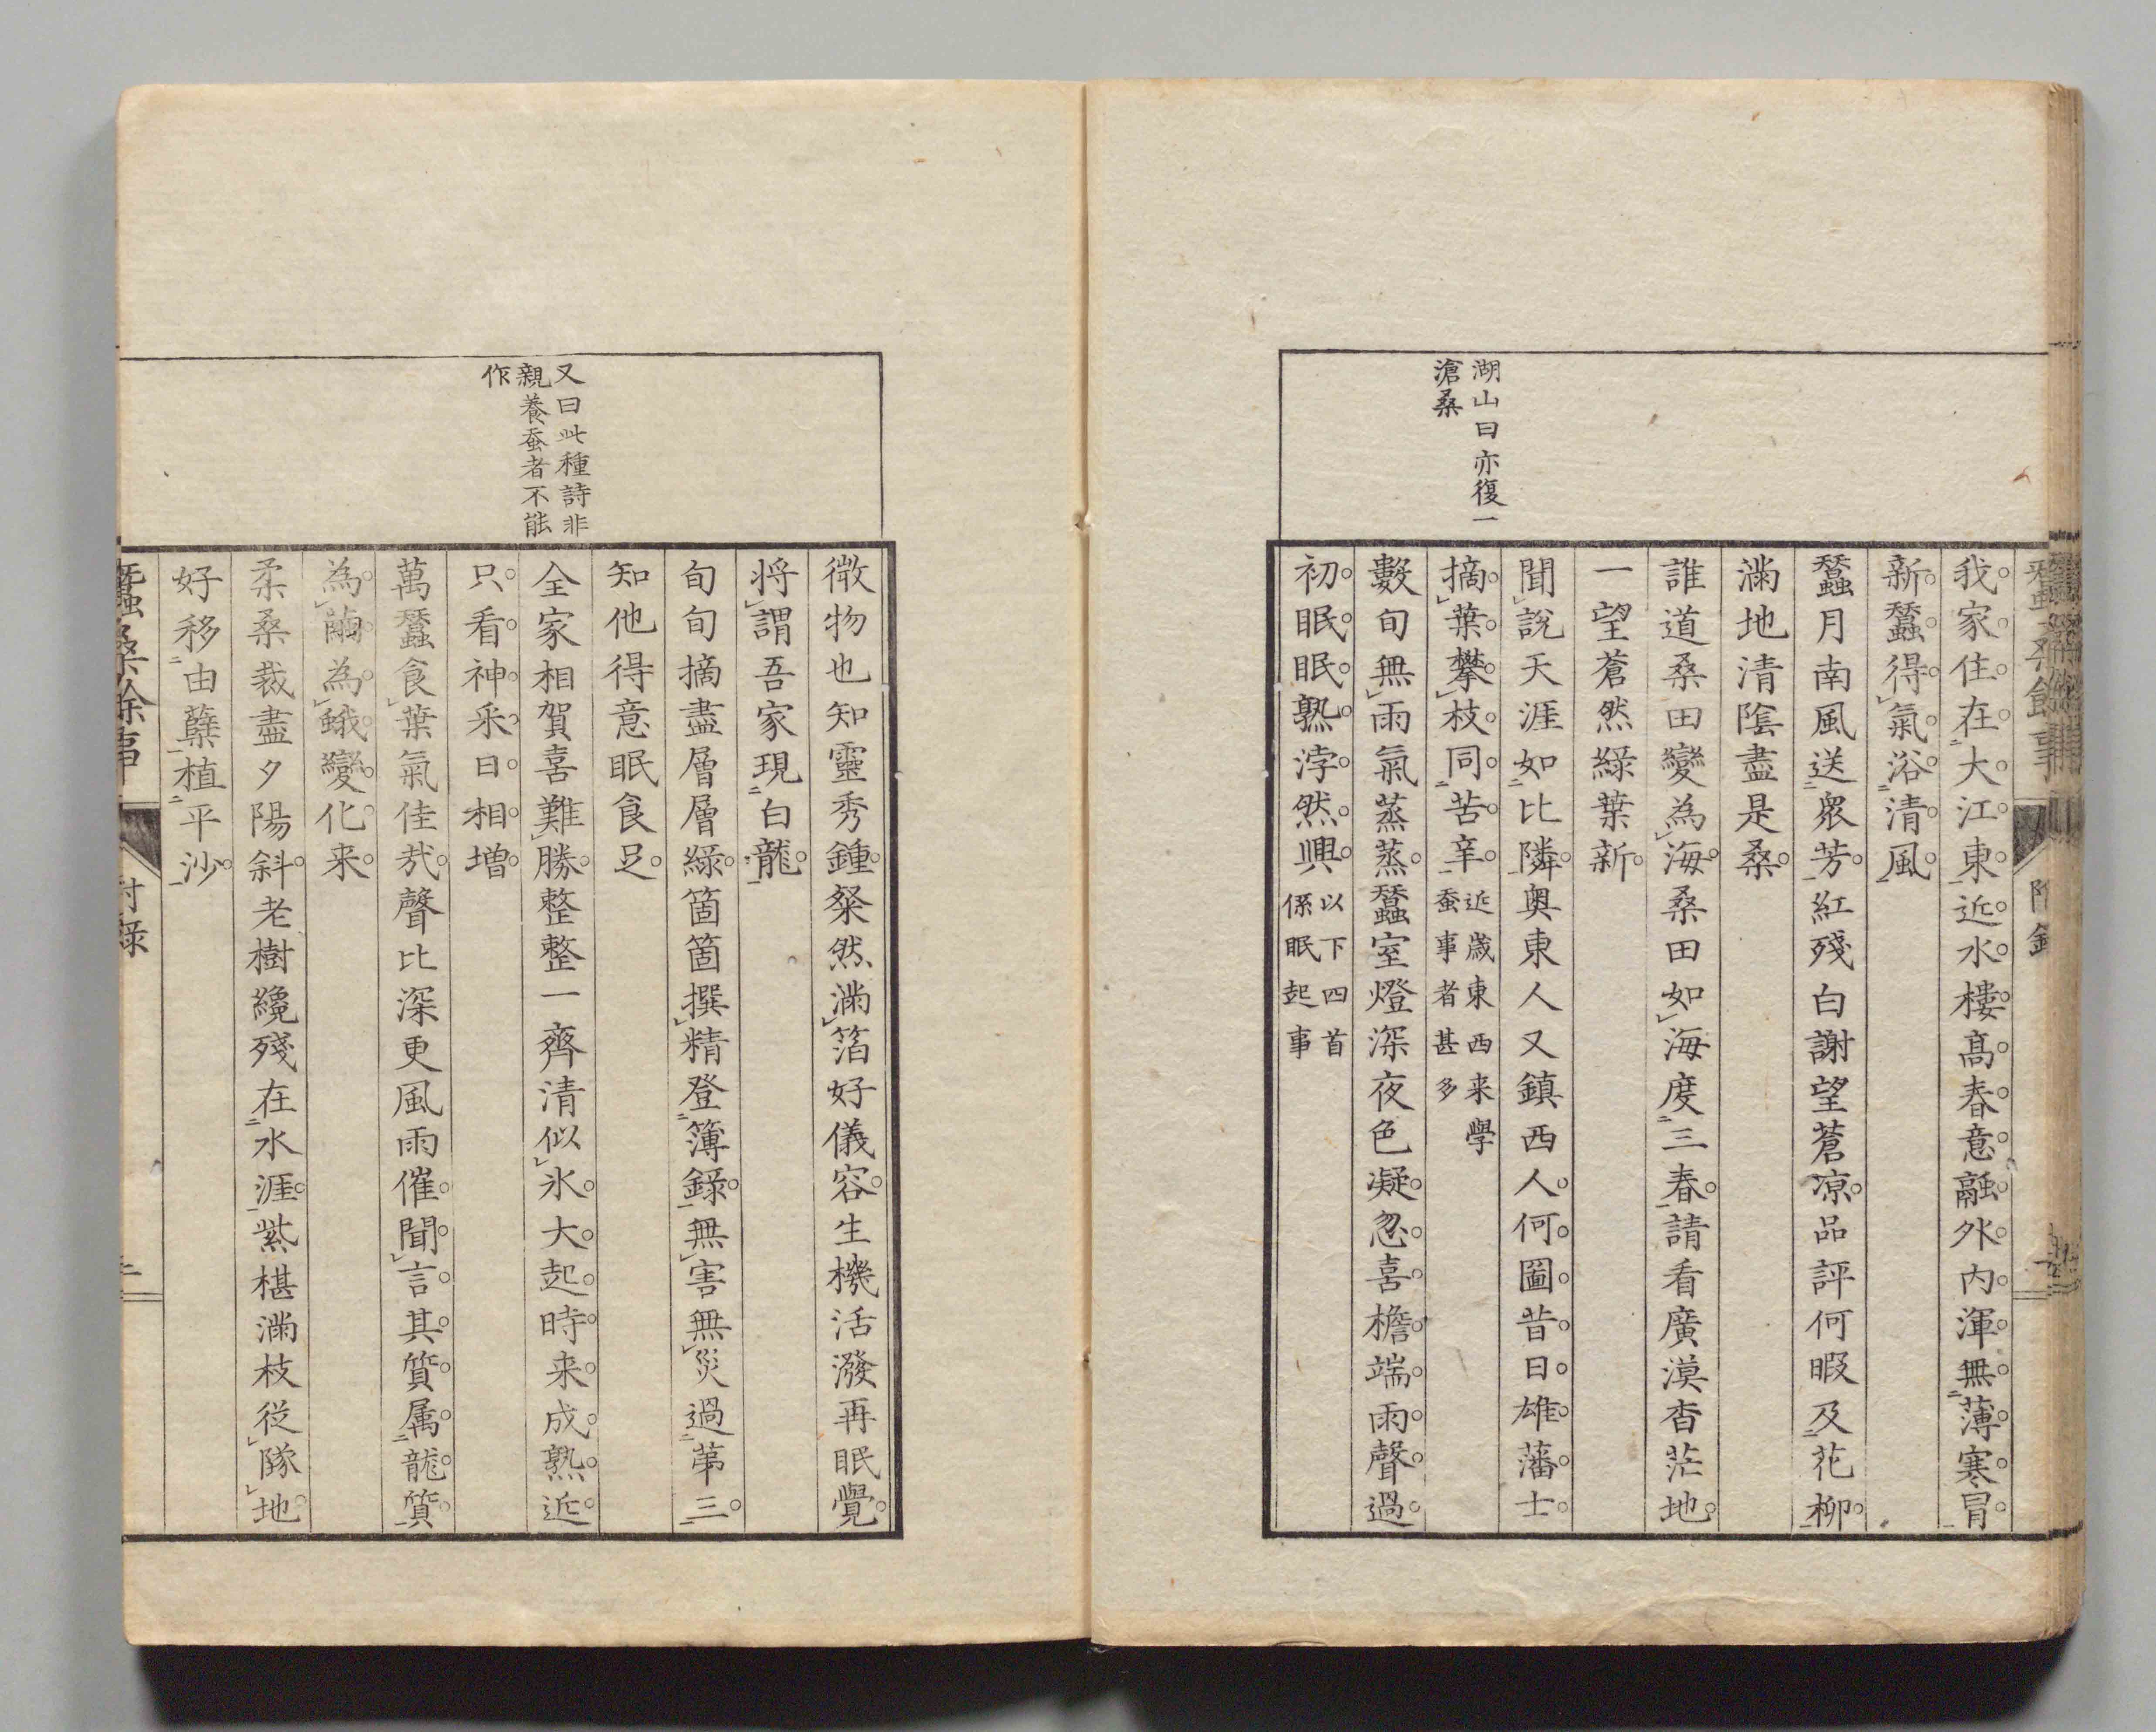 湖山曰亦復一
滄桑
我家住在大江東近水樓髙春意融外内渾無薄寒冒
新蠶得氣浴清風
蠶月南風送衆芳紅殘白謝望蒼凉品評何暇及花柳
滿地清陰盡是桑
誰道桑田變為海桑田如海度三春請看廣漠杳茫地
一望蒼然綠葉新
聞說天涯如比隣奥東人又鎮西人何圖昔日雄藩士
摘葉攀枝同苦辛近歲東西来學
蚕事者甚多
數旬無雨氣蒸蒸蠶室燈深夜色凝忽喜檐端雨聲過
初眠眠熟浡然興以下四首
係眠起事
又曰此種詩非
親養蚕者不能
作
微物也知靈秀鍾粲然滿箔好儀容生機活潑再眠覺
将謂吾家現白龍
旬旬摘盡層層綠箇箇撰精登簿錄無害無災過苐三
知他得意眠食足
全家相賀喜難勝整整一齊清似氷大起時来成熟近
只看神采日相增
萬蠶食葉氣佳哉聲比深更風雨催聞言其質属龍質
為繭為蛾變化来
柔桑裁盡夕陽斜老樹纔殘在水涯紫椹滿枝従隊地
好移由蘖植平沙
蠶桑餘事
附録